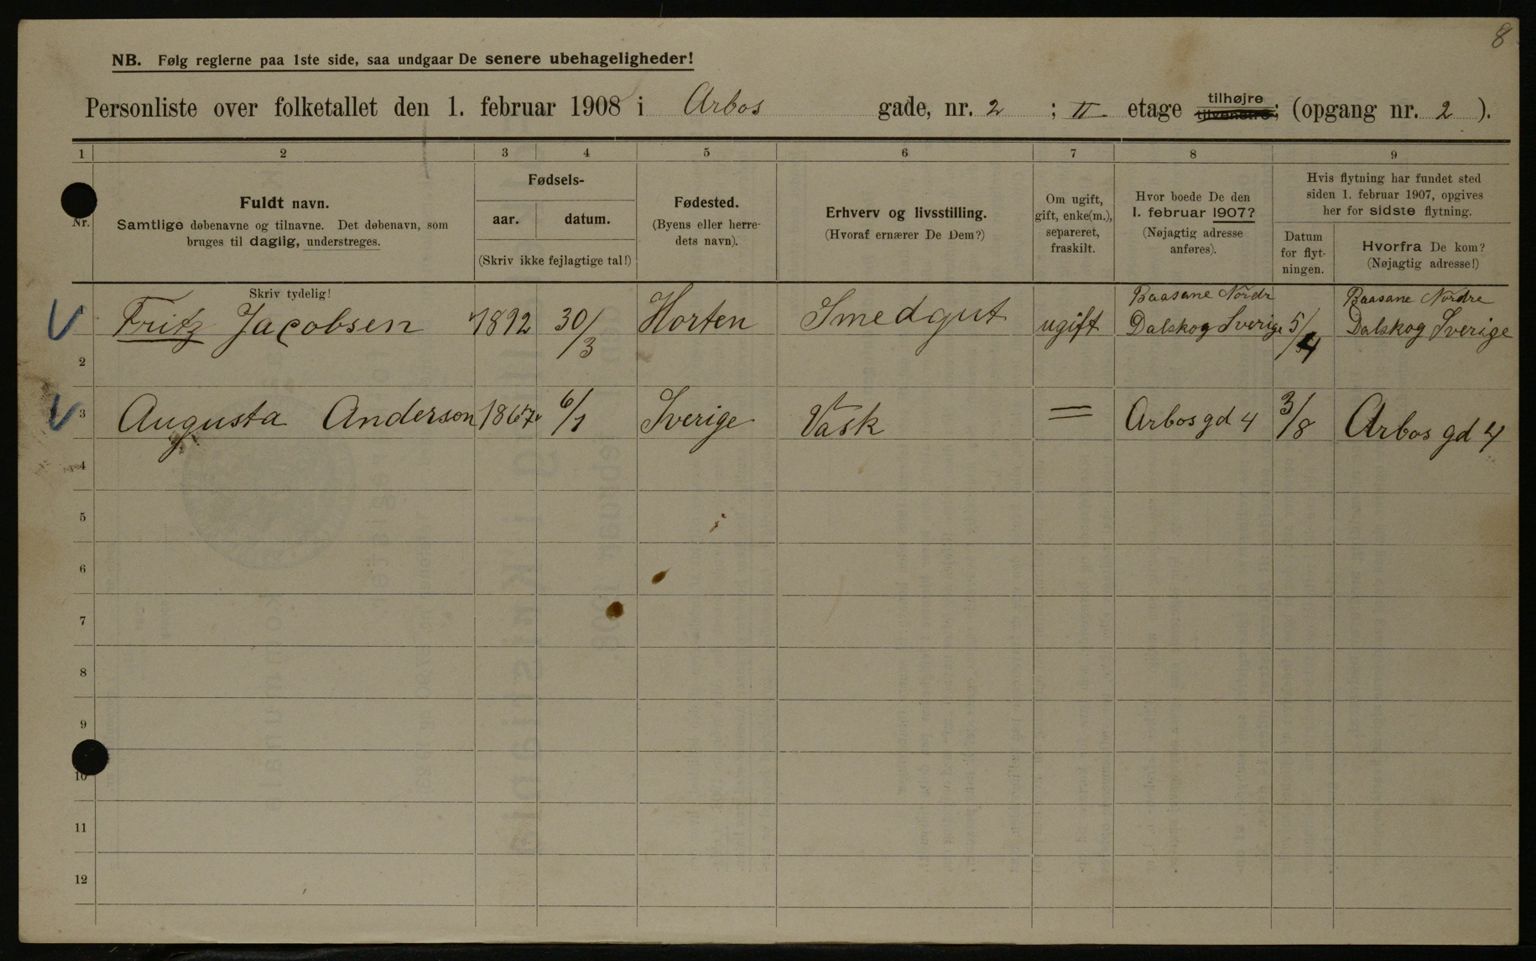 8
NB. Følg reglerne paa 1ste side, saa undgaar De senere ubehageligheder!
Personliste over folketallet den 1. februar 1908 i Arbos gade, nr. 2 ; II etage tilhøjre tilvenstre; (opgang nr. 2 ).
1 2 3 4 5 6 7 8 9
Nr.
Fuldt navn.
Samtlige døbenavne og tilnavne. Det døbenavn, som
bruges til daglig, understreges.
Fødsels-
aar. datum.
(Skriv ikke fejlagtige tal!)
Fødested.
(Byens eller herre-
dets navn).
Erhverv og livsstilling.
(Hvoraf ernærer De Dem?)
Om ugift,
gift, enke(m.),
separeret,
fraskilt.
Hvor boede De den
1. februar 1907?
(Nøjagtig adresse
anføres).
Hvis flytning har fundet sted
siden 1. februar 1907, opgives
her for sidste flytning.
Datum
for flyt-
ningen.
Hvorfra De kom?
(Nøjagtig adresse!)
Skriv tydelig!
Baasane Nordr Baasane Nordre
Fritz Jacobsen 1892 30/3 Horten Smedgut ugift Dalskog Sverige 5/4 Dalskog Sverige
2
3 Augusta Anderson 1867 6/1 Sverige Vask = Arbosgd 4 3/8 Arbos gd 4
4
5
6
7
8
9
10
11
12